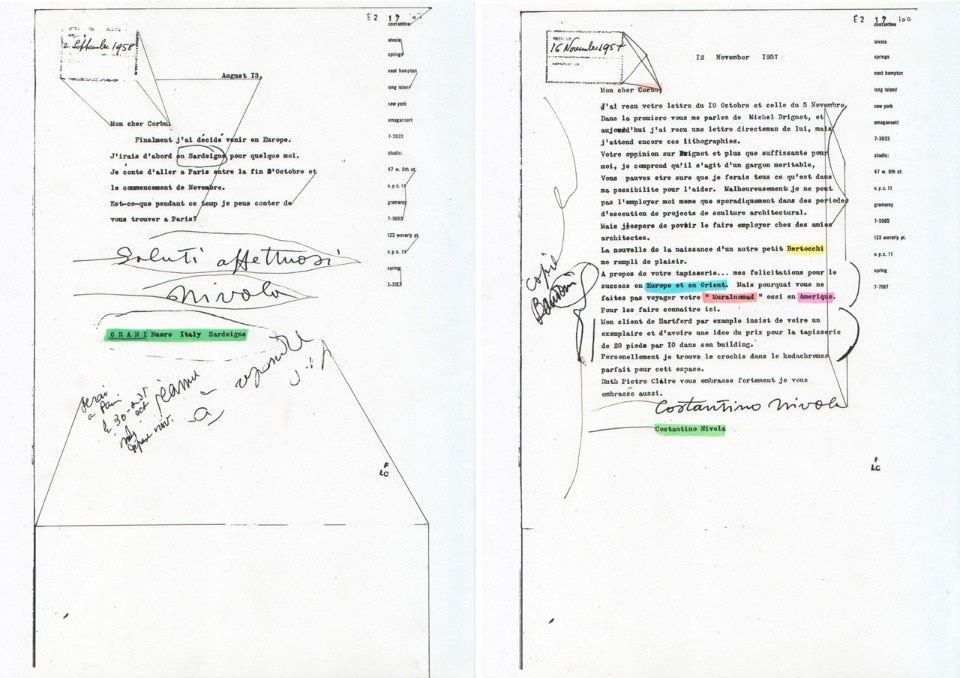 E2 17
2 Settembre 1958
costantino
nivola
springs
east hampton
long island
new york
amagansett
7-2033
studio:
47 w. 8th st.
n.y.c. 11
gramercy
7-5065
123 waverly pl.
n.y.c. 11
spring
August 13,
Mon cher Corbu
Finalment j'ai décidé venir en Europe.
J'irais d'abord en Sardeigne pour quelque moi.
Je conte d'aller a Paris entre la fin d'Octobre et
le commencement de Novembre.
Est-ce-que pendant ce temp je peus conter de
vous trouver a Paris?
Saluti affettuosi
Nivola
ORANI Nuoro Italy Sardeigne
a Paris
F
LC
E2 17 100
16 Novembre 1957
costantino
nivola
springs
east hampton
long island
new york
amagansett
7-2033
studio:
47 w. 8th st.
n.y.c. 11
gramercy
7-5065
123 waverly pl.
n.y.c. 11
spring
7-2107
12 November 1957
Mon cher Corbu
J'ai recu votre lettro du 19 Octobre et celle du 5 Novembre.
Dans la premiere vous me parlez de Michel Brignot, et
aujourd'hui j'ai recu une lettre directeman de lui, mais
j'attend encore ces lithographies.
Votre opinion sur Brignot et plus que suffisante pour
moi, je comprend qu'il s'agit d'un gargon meritable,
Vous pauvez etre sure que je ferais tous ce qu'est dans
ma possibilite pour l'aider. Malhoureusement je ne peut
pas l'employer moi meme que sporadiquement dans des periodes
d'esecution de projects de sculture architectural.
Mais jéspere de povoir le faire employer chez des amies
architectes.
La nouvelle de la naissance d'un autre petit Bertocchi
me rempli de plaisir.
A propos de votre tapisserie... mes felicitations pour le
success en Europe et en Orient. Mais pourquat vous ne
faites pas voyager votre " Muralnomad " essi en Amerique.
Pour les faire connaitre ici.
Mon client de Hartferd par example insist de voire un
exemplaire et d'avoire une idee du prix pour la tapisserie
de 20 pieds par 10 dans son building.
Personellement je trouve le crochis dans le kodachromes
parfait pour cett espace.
Ruth Pietro Claire vous embrasse fortement je vous
embrasse aussi.
Costantino Nivola
Costantino Nivola
copie
F
LC